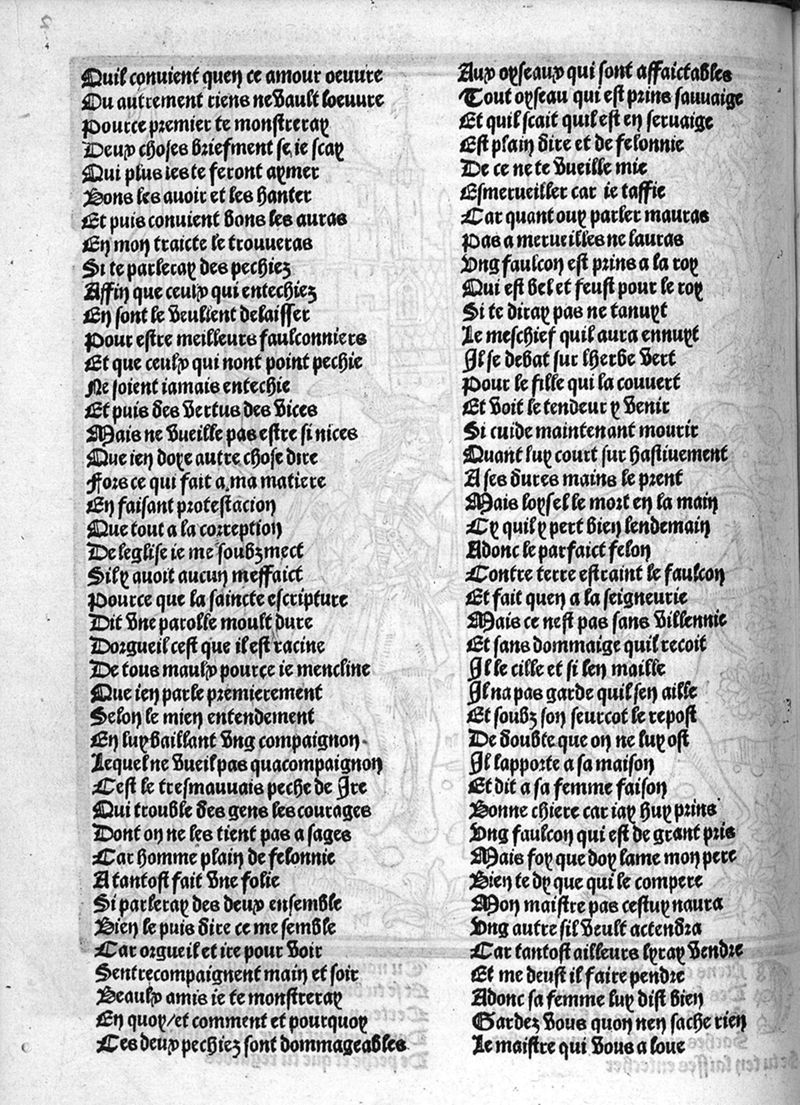 Quil convient quen ce amour oeuure
Ou autrement riens ne vault loeuure
Pource premier te monstreray
Deux choses briefment se ie scay
Qui plus ies te feront aymer
Bons les auoir et les hanter
Et puis convient bons les auras
En mon traicte le trouueras
Si te parleray des pechiez
Affin que ceulx qui entechiez
En sont le veulient delaisser
Pour estre meilleurs faulconniers
Et que ceulx qui nont point pechie
Ne soient iamais entechie
Et puis des vertus des vices
Mais ne vueille pas estre si nices
Que ien doye autre chose dire
Fors ce qui fait a ma matiere
En faisant protestacion
Que tout a la correption
De leglise ie me soubzmect
Sil y auoit aucun meffaict
Pource que la saincte escripture
Dit vne parolle moult dure
Dorgueil cest que il est racine
De tous maulx pource ie mencline
Que ien parle premierement
Selon le mien entendement
En luy baillant vng compaignon
Lequel ne vueil pas quacompaignon
Cest le tresmauvais peche de Ire
Qui trouble des gens les courages
Dont on ne les tient pas a sages
Car homme plain de felonnie
A tantost fait vne folie
Si parleray des deux ensemble
Bien le puis dire ce me semble
Car orgueil et ire pour voir
Sentrecompaignent main et soir
Beaulx amis ie te monstreray
En quoy/et comment et pourquoy
Ces deux pechiez sont dommageables
Aux oyseaux qui sont affaictables
Tout oyseau qui est prins sauuaige
Et quil scait quil est en seruaige
Est plain dire et de felonnie
De ce ne te vueille mie
Esmerueiller car ie taffie
Car quant ouy parler mauras
Pas a merueilles ne lauras
Vng faulcon est prins a la roy
Qui est bel et feust pour le roy
Si te diray pas ne tanuyt
Le meschief quil aura ennuyt
Il se debat sur lherbe vert
Pour le fille qui la couuert
Et voit le tendeur y venir
Si cuide maintenant mourir
Quant luy court sur hastiuement
A ses dures mains le prent
Mais loysel le mort en la main
Cy quil y pert bien lendemain
Adonc le parfaict felon
Contre terre estraint le faulcon
Et fait quen a la seigneurie
Mais ce nest pas sans villennie
Et sans dommaige quil recoit
Il le cille et si len maille
Il na pas garde quil sen aille
Et soubz son seurcot le repost
De doubte que on ne luy ost
Il lapporte a sa maison
Et dit a sa femme faison
Bonne chiere car iay huy prins
Vng faulcon qui est de grant pris
Mais foy que doy lame mon pere
Bien te dy que qui le compere
Mon maistre pas cestuy naura
Vng autre sil veult actendra
Car tantost ailleurs lyray vendre
Et me deust il faire pendre
Adonc sa femme luy dist bien
Gardez vous quon nen sache rien
Le maistre qui vous a loue